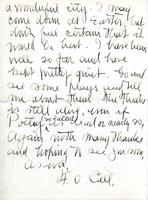 a wonderful city. I may
come down at Easter but
don't feel certain that it
would be best. I have been
well so far and have
kept pretty quiet. Go and
see some plays and tell
me about them. The theatre
is still alive, even if
Poetry (so called) is dead or nearly so.
Again with many thanks
and hoping to see you soon,
As ever
F. O. Call.